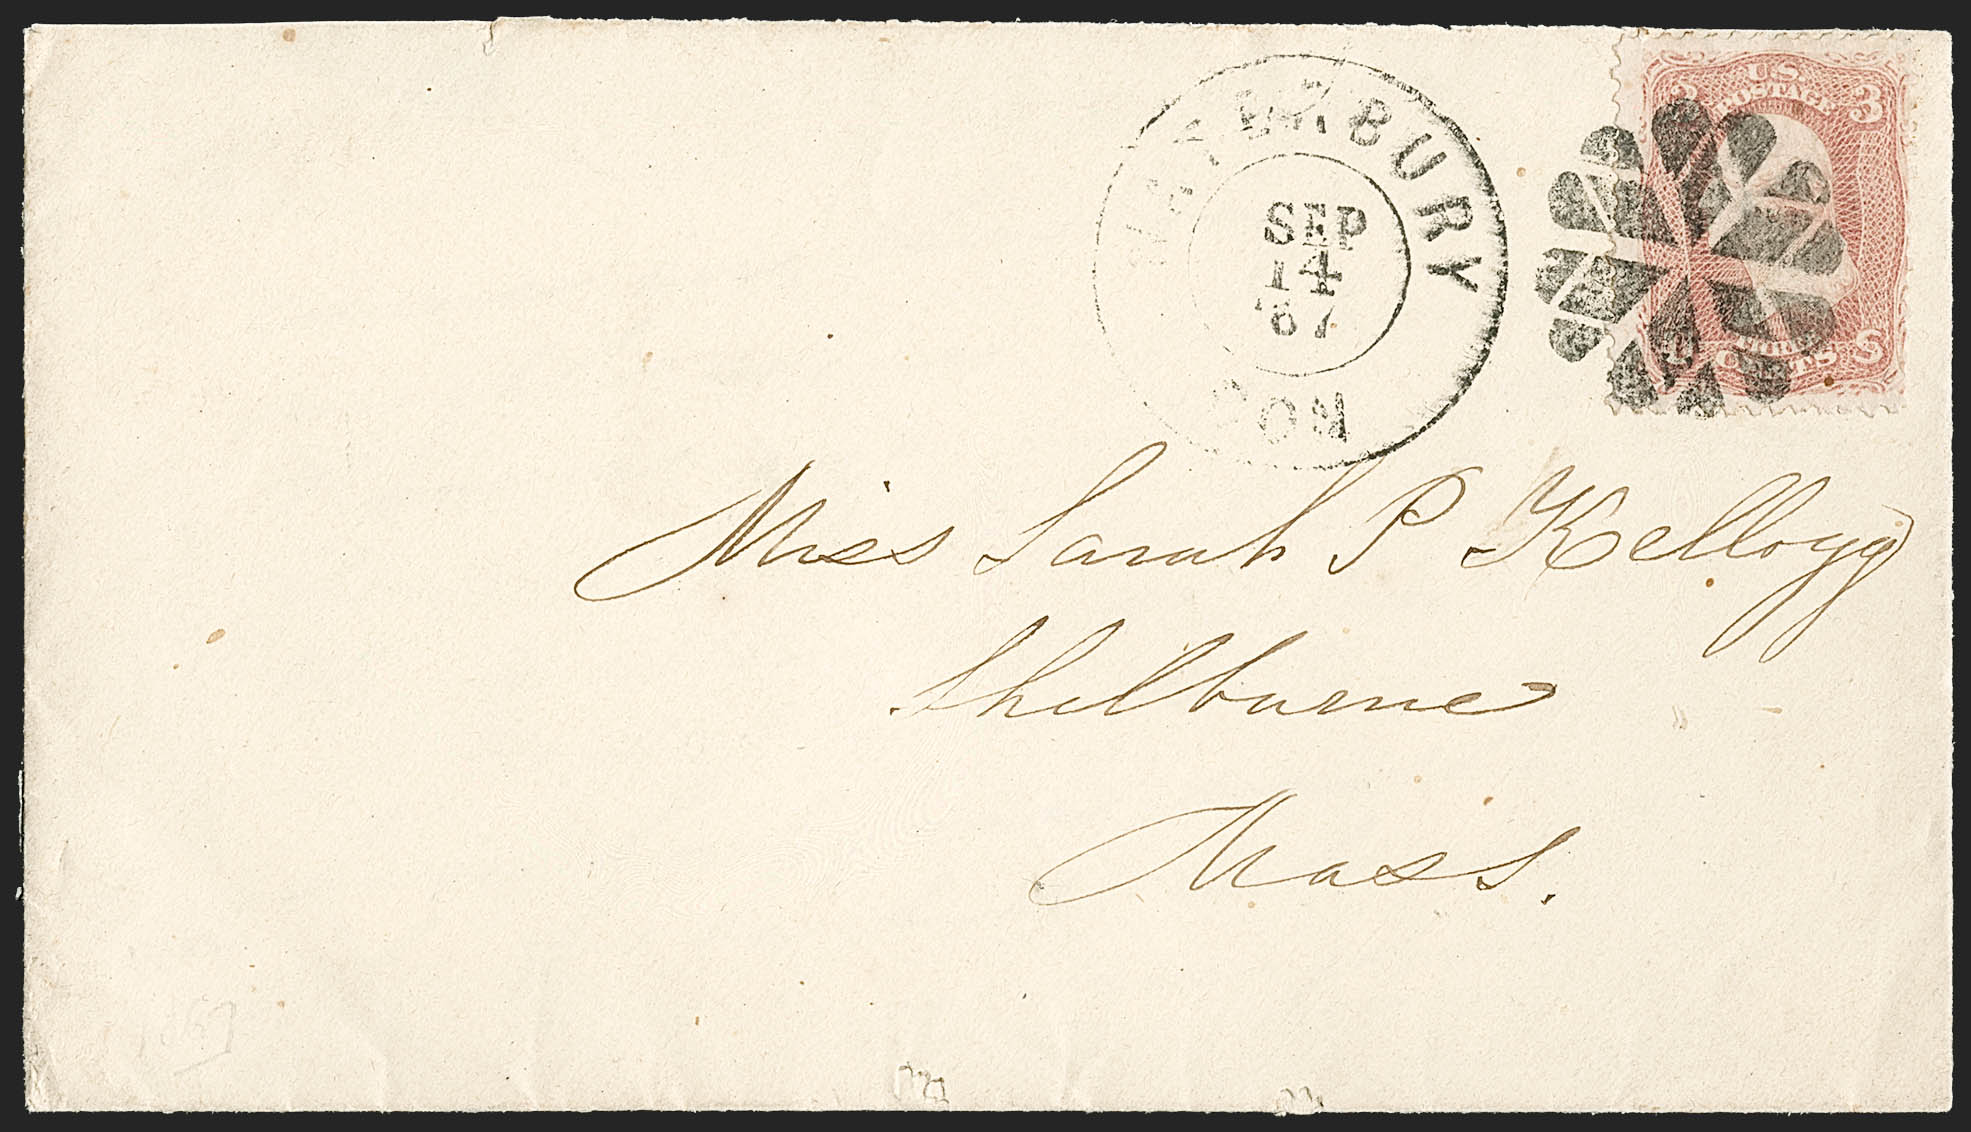 WATERBURY
SEP
14
'67
CON
U.S.
POSTAGE
3 3
THREE
CENTS
U S
Miss Sarah P Kellogg
Shelburne
Mass.